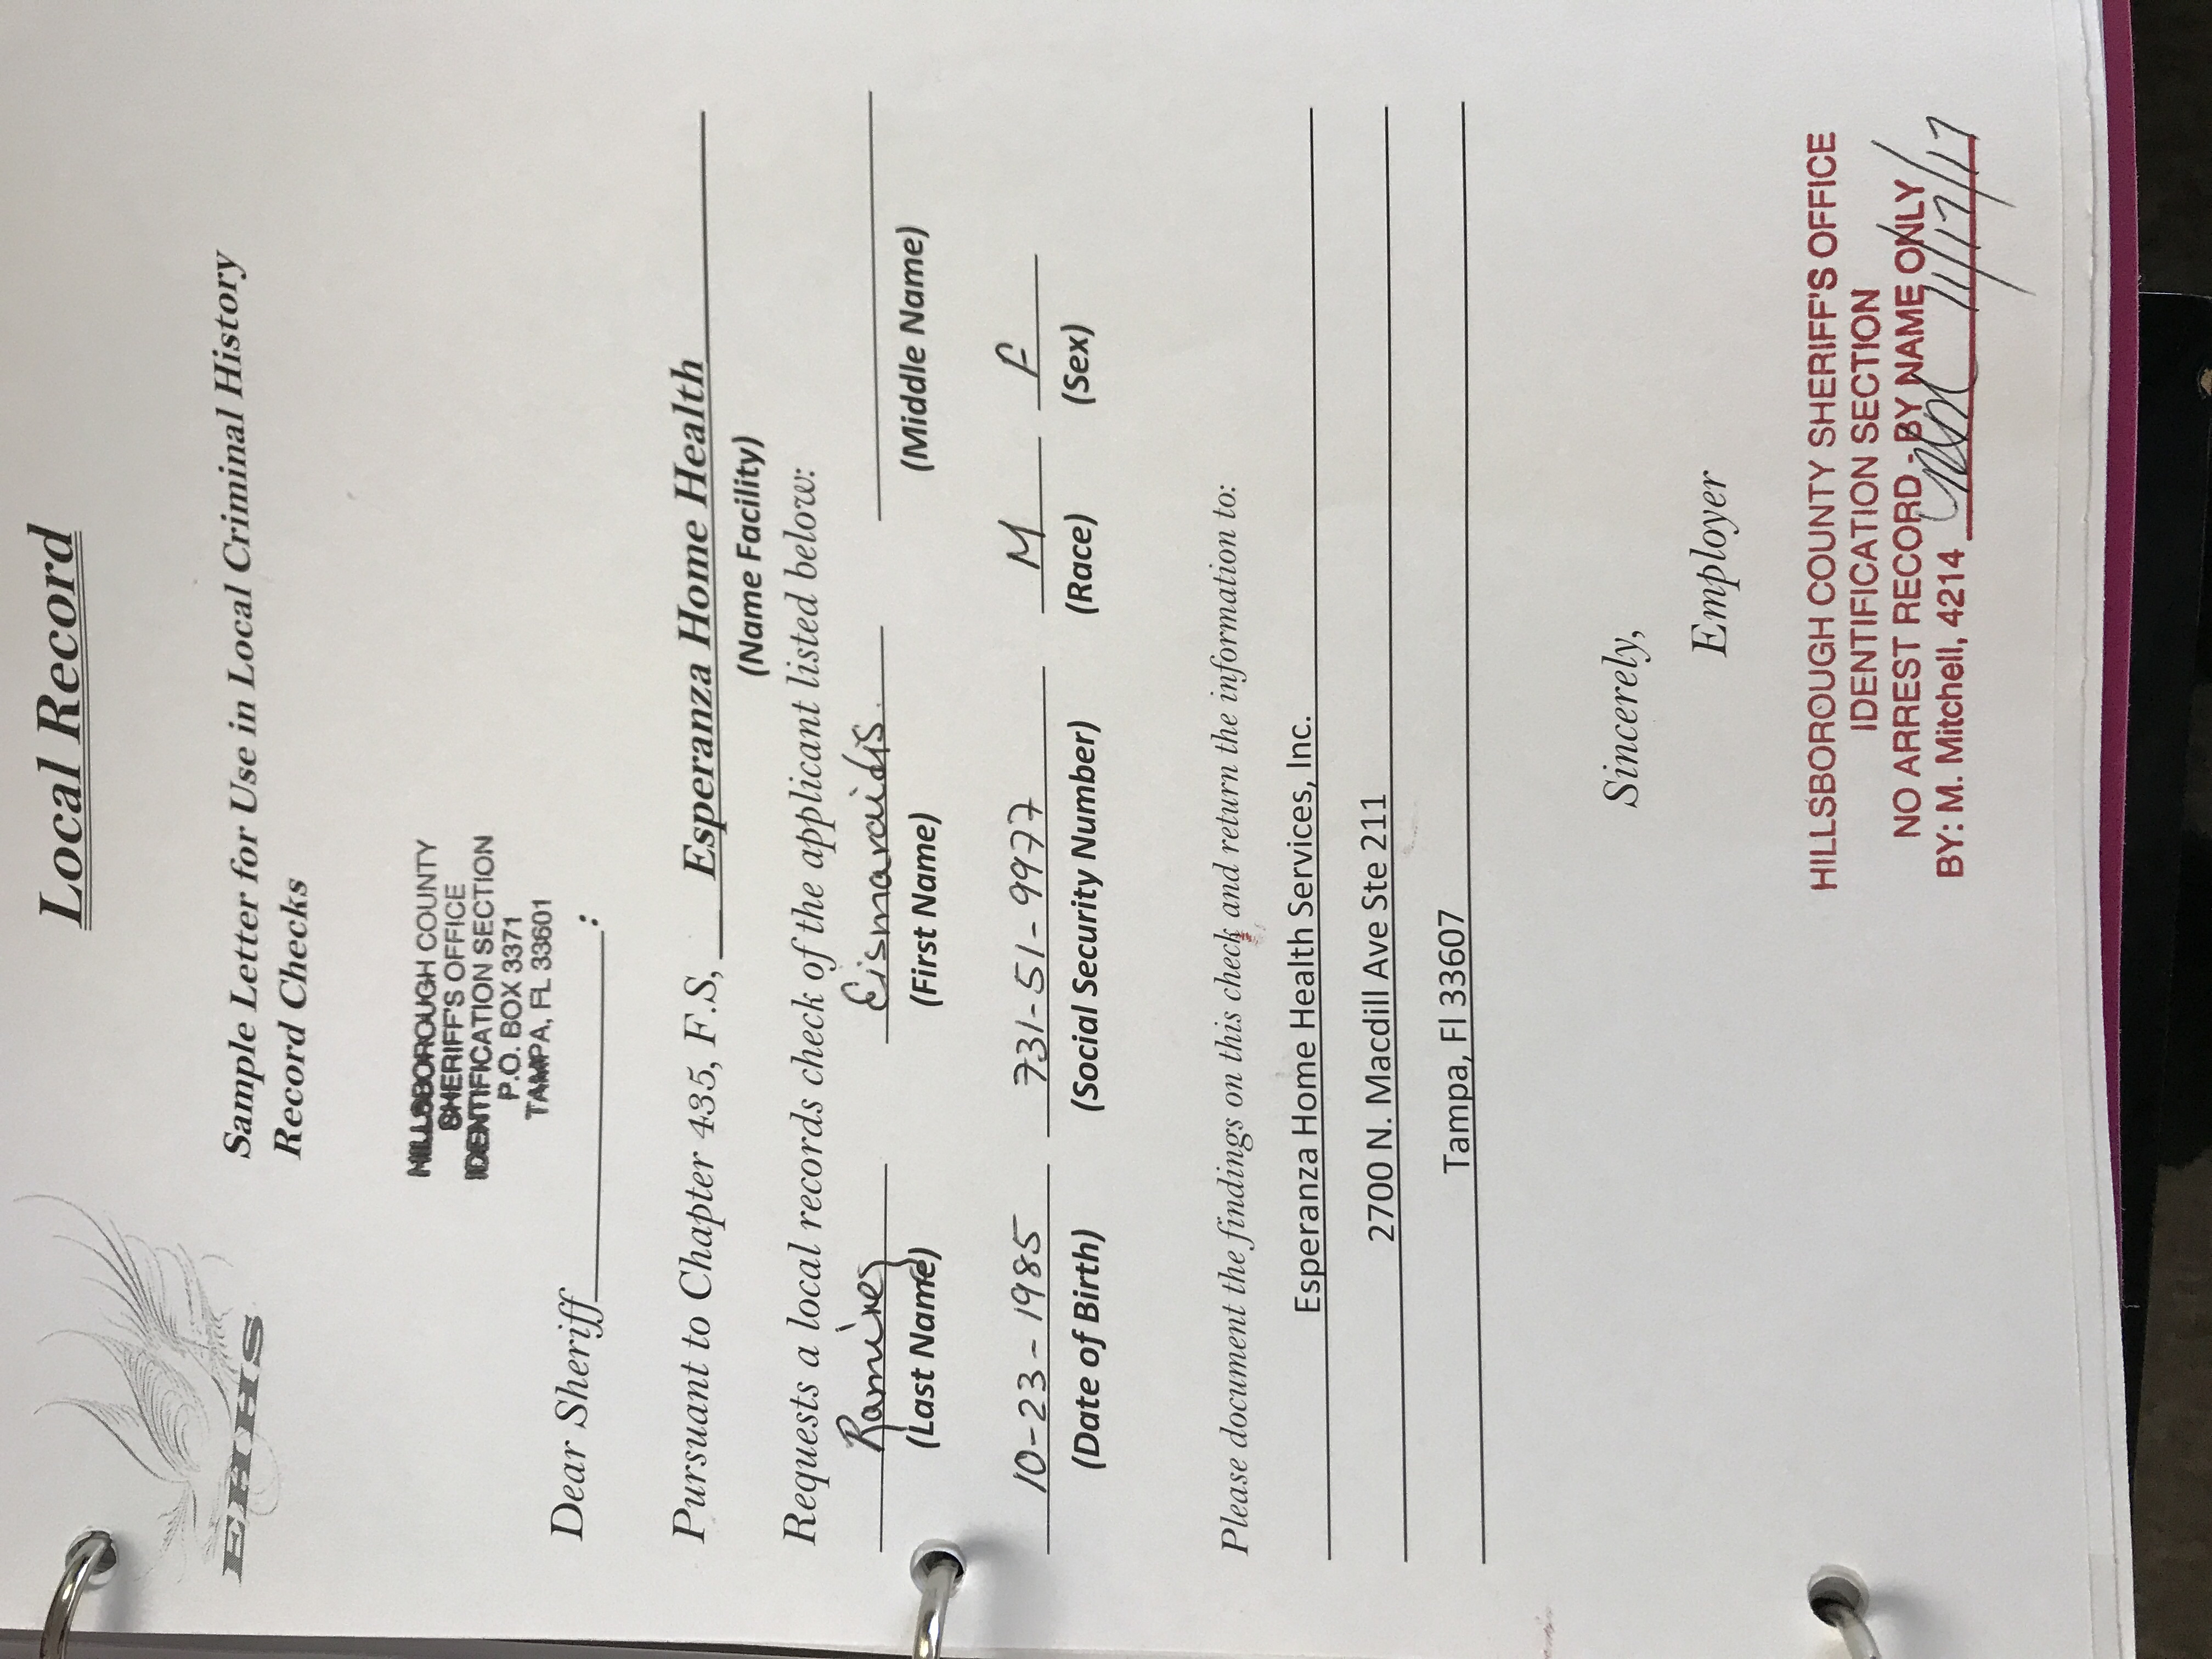 Local Record
EHHS
Sample Letter for Use in Local Criminal History
Record Checks
HILLSBOROUGH COUNTY
SHERIFF'S OFFICE
IDENTIFICATION SECTION
P.O. BOX 3371
TAMPA, FL 33601
Dear Sheriff :
Pursuant to Chapter 435, F.S, Esperanza Home Health
(Name Facility)
Requests a local records check of the applicant listed below:
Ramirez Eismaraidis.
(Last Name) (First Name) (Middle Name)
10-23-1985 731-51-9977 M F
(Date of Birth) (Social Security Number) (Race) (Sex)
Please document the findings on this check and return the information to:
Esperanza Home Health Services, Inc.
2700 N. Macdill Ave Ste 211
Tampa, Fl 33607
Sincerely,
Employer
HILLSBOROUGH COUNTY SHERIFF'S OFFICE
IDENTIFICATION SECTION
NO ARREST RECORD - BY NAME ONLY
BY: M. Mitchell, 4214 11/17/17